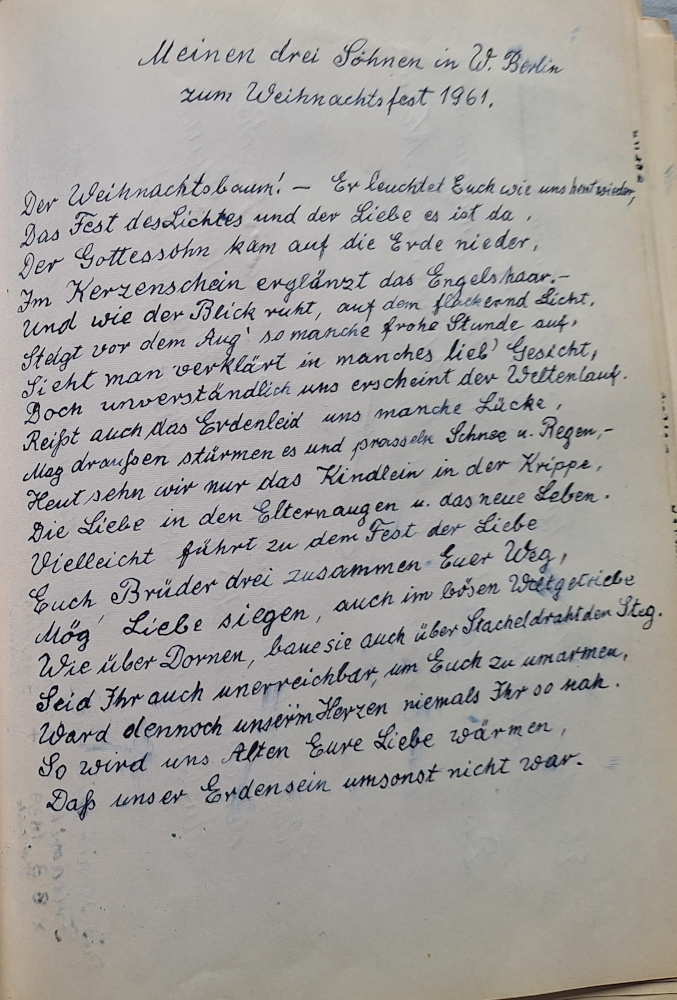 Meinen drei Söhnen in W. Berlin
zum Weihnachtsfest 1961.
Der Weihnachtsbaum! – Er leuchtet Euch wie uns heut wieder,
Das Fest des Lichtes und der Liebe es ist da,
Der Gottessohn kam auf die Erde nieder,
Im Kerzenschein erglänzt das Engelshaar.–
Und wie der Blick ruht, auf dem flackernd Licht,
Steigt vor dem Aug' so manche frohe Stunde auf,
Sieht man verklärt in manches lieb' Gesicht,
Doch unverständlich uns erscheint der Weltenlauf.
Reißt auch das Erdenleid uns manche Lücke,
Mag draußen stürmen es und prasseln Schnee u. Regen,–
Heut sehn wir nur das Kindlein in der Krippe,
Die Liebe in den Elternaugen u. das neue Leben.
Vielleicht führt zu dem Fest der Liebe
Euch, Brüder drei zusammen Euer Weg,
Mög' Liebe siegen, auch im bösen Weltgetriebe
Wie über Dornen, baue sie auch über Stacheldraht den Steg.
Seid Ihr auch unerreichbar, um Euch zu umarmen,
Ward dennoch unserm Herzen niemals Ihr so nah.
So wird uns Alten Eure Liebe wärmen,
Daß unser Erdensein umsonst nicht war.